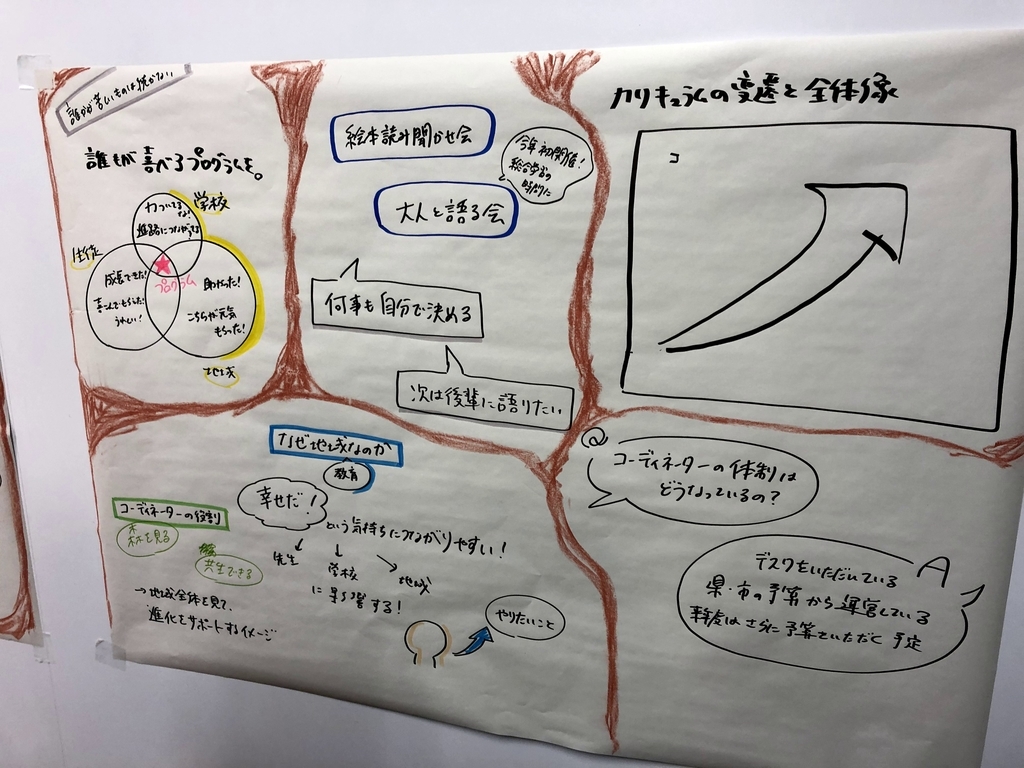 誰かが苦しいものは続かない
誰もが喜べるプログラムを。
学校
力ついてるな!
進路につながってる
生徒
成長できた!
喜んでもらえた!
うれしい!
プログラム
助かった!
こちらが元気
もらった!
地域
絵本読み聞かせ会
今年初開催!
総合学習の
時間に
大人と語る会
何事も自分で決める
次は後輩に語りたい
カリキュラムの変遷と全体像
コ
なぜ地域なのか
教育
幸せだ!
という気持ちにつながりやすい!
先生
学校
地域
に影響する!
コーディネーターの役割
森を見る
共生できる
→地域全体を見て、
進化をサポートするイメージ
やりたいこと
Q
コーディネーターの体制は
どうなっているの?
A
デスクをいただいている
県・市の予算から運営している
来年度はさらに予算をいただく予定